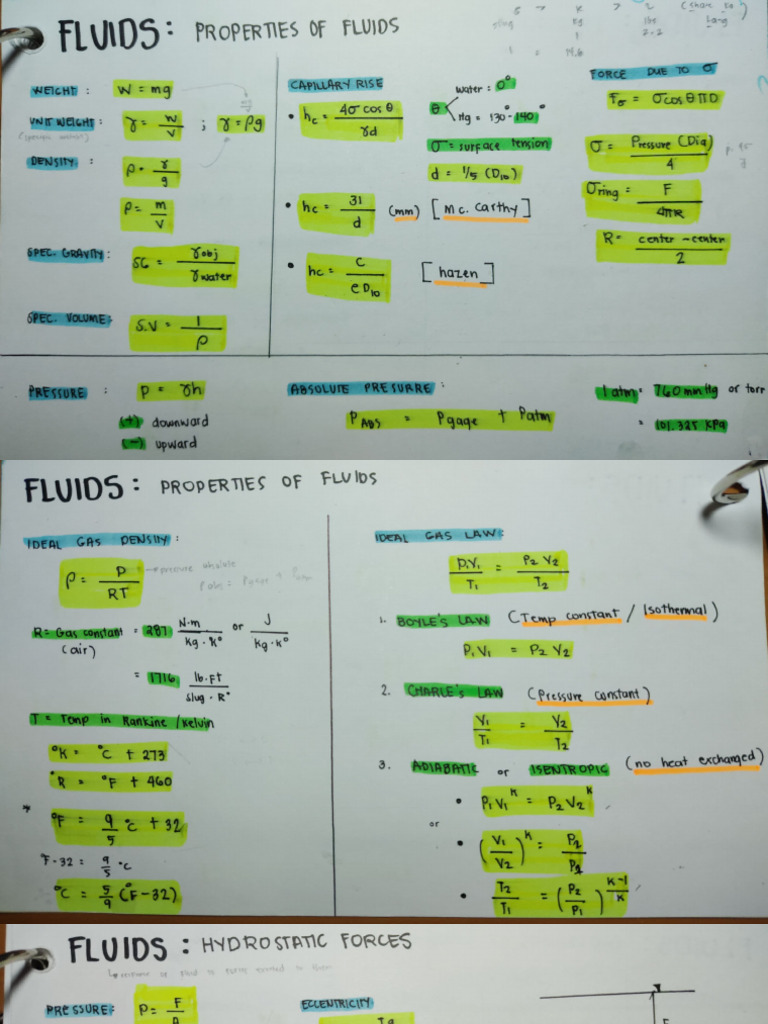 FLUIDS: PROPERTIES OF FLUIDS
WEIGHT: W = mg
UNIT WEIGHT: γ = W/V ; γ = ρg
DENSITY: ρ = γ/g
ρ = m/V
SPEC. GRAVITY: SG = γobj/γwater
SPEC. VOLUME: S.V = 1/ρ
CAPILLARY RISE
• hc = 4σ cos θ/γd
θ water: 0°
Hg = 130°-140°
σ = surface tension
d = 1/5 (D10)
• hc = 31/d (mm) [Mc. Carthy]
• hc = C/eD10 [hazen]
FORCE DUE TO σ
Fσ = σcos θ πD
σ = Pressure (Dia)/4
σring = F/4πR
R = center-center/2
PRESSURE: P = γh
(+) downward
(-) upward
ABSOLUTE PRESURRE:
PABS = Pgage + Patm
1 atm = 760 mmHg or torr
= 101.325 KPa
FLUIDS: PROPERTIES OF FLUIDS
IDEAL GAS DENSITY:
ρ = P/RT
R = Gas constant = 287 N·m/kg·K° or J/kg·K°
(air)
= 1716 lb·ft/slug·R°
T = Temp in Rankine/Kelvin
°K = °C + 273
°R = °F + 460
°F = 9/5 °C + 32
°F-32 = 9/5 °C
°C = 5/9 (°F-32)
IDEAL GAS LAW:
P1V1/T1 = P2V2/T2
1. BOYLE'S LAW (Temp constant / Isothermal)
P1V1 = P2V2
2. CHARLE'S LAW (Pressure constant)
V1/T1 = V2/T2
3. ADIABATIC or ISENTROPIC (no heat exchanged)
• P1V1^K = P2V2^K
or
• (V1/V2)^K = P2/P1
• T2/T1 = (P2/P1)^K-1/K
FLUIDS: HYDROSTATIC FORCES
PRESSURE: P = F/A
ECCENTRICITY